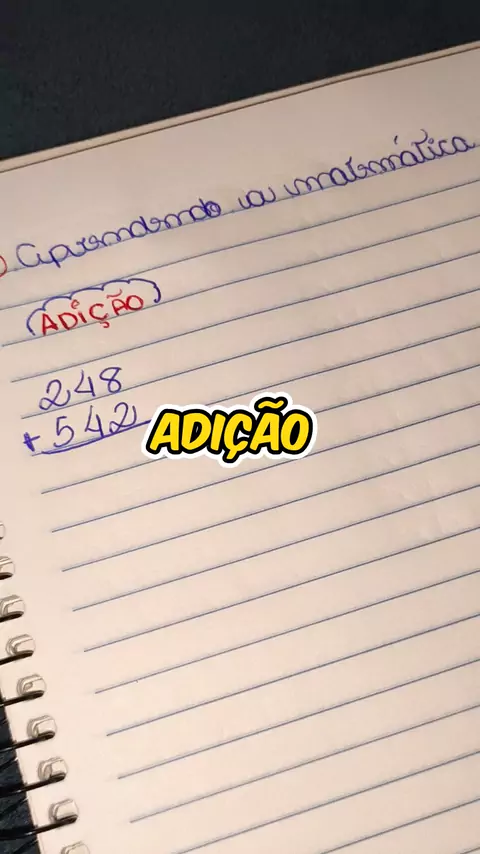 Aprendendo a matemática
ADIÇÃO
248
+ 542
ADIÇÃO